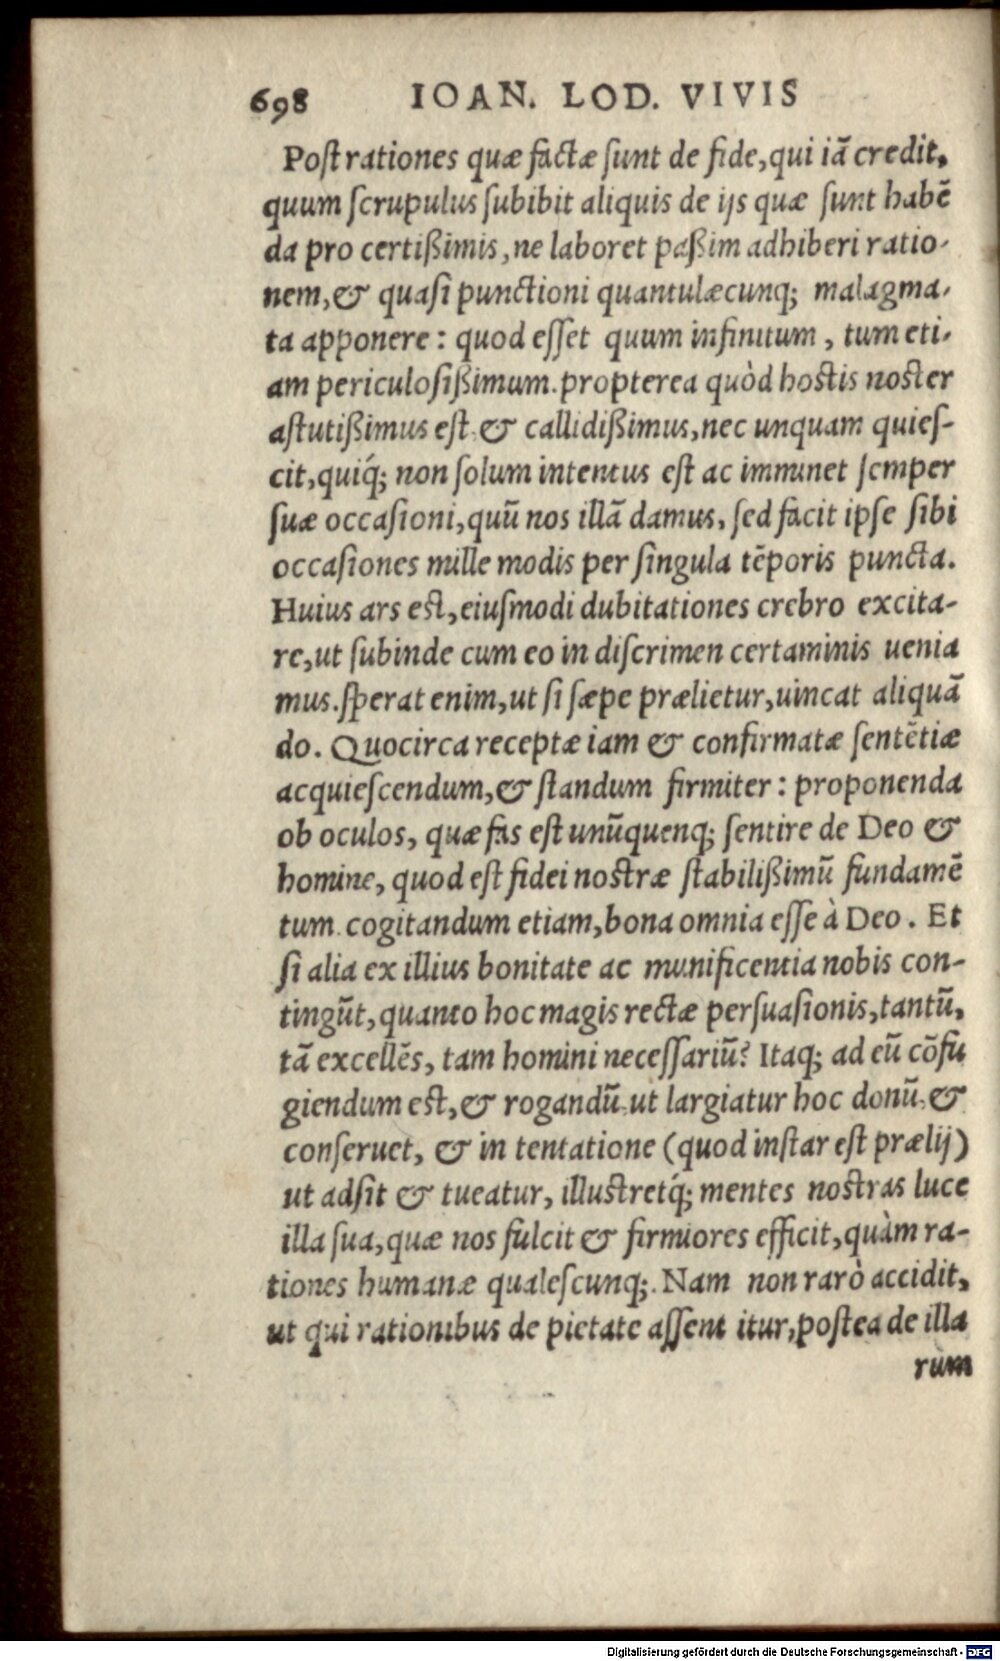 698 IOAN. LOD. VIVIS
Post rationes quæ factæ sunt de fide, qui iā credit,
quum scrupulus subibit aliquis de ijs quæ sunt habē
da pro certißimis, ne laboret paßim adhiberi ratio-
nem, & quasi punctioni quantulæcunq; malagma-
ta apponere: quod esset quum infinitum, tum eti-
am periculosißimum. propterea quòd hostis noster
astutißimus est & callidißimus, nec unquam quies-
cit, quiq́; non solum intentus est ac imminet semper
suæ occasioni, quū nos illā damus, sed facit ipse sibi
occasiones mille modis per singula tēporis puncta.
Huius ars est, eiusmodi dubitationes crebro excita-
re, ut subinde cum eo in discrimen certaminis uenia
mus. sperat enim, ut si sæpe prælietur, uincat aliquā
do. Quocirca receptæ iam & confirmatæ sentētiæ
acquiescendum, & standum firmiter: proponenda
ob oculos, quæ fas est unūquenq; sentire de Deo &
homine, quod est fidei nostræ stabilißimū fundamē
tum. cogitandum etiam, bona omnia esse à Deo. Et
si alia ex illius bonitate ac munificentia nobis con-
tingūt, quanto hoc magis rectæ persuasionis, tantū,
tā excellēs, tam homini necessariū? Itaq; ad eū cōfu
giendum est, & rogandū, ut largiatur hoc donū, &
conseruet, & in tentatione (quod instar est prælij)
ut adsit & tueatur, illustretq́; mentes nostras luce
illa sua, quæ nos fulcit & firmiores efficit, quàm ra-
tiones humanæ qualescunq;. Nam non rarò accidit,
ut qui rationibus de pietate assentitur, postea de illa
rum
Digitalisierung gefördert durch die Deutsche Forschungsgemeinschaft - DFG